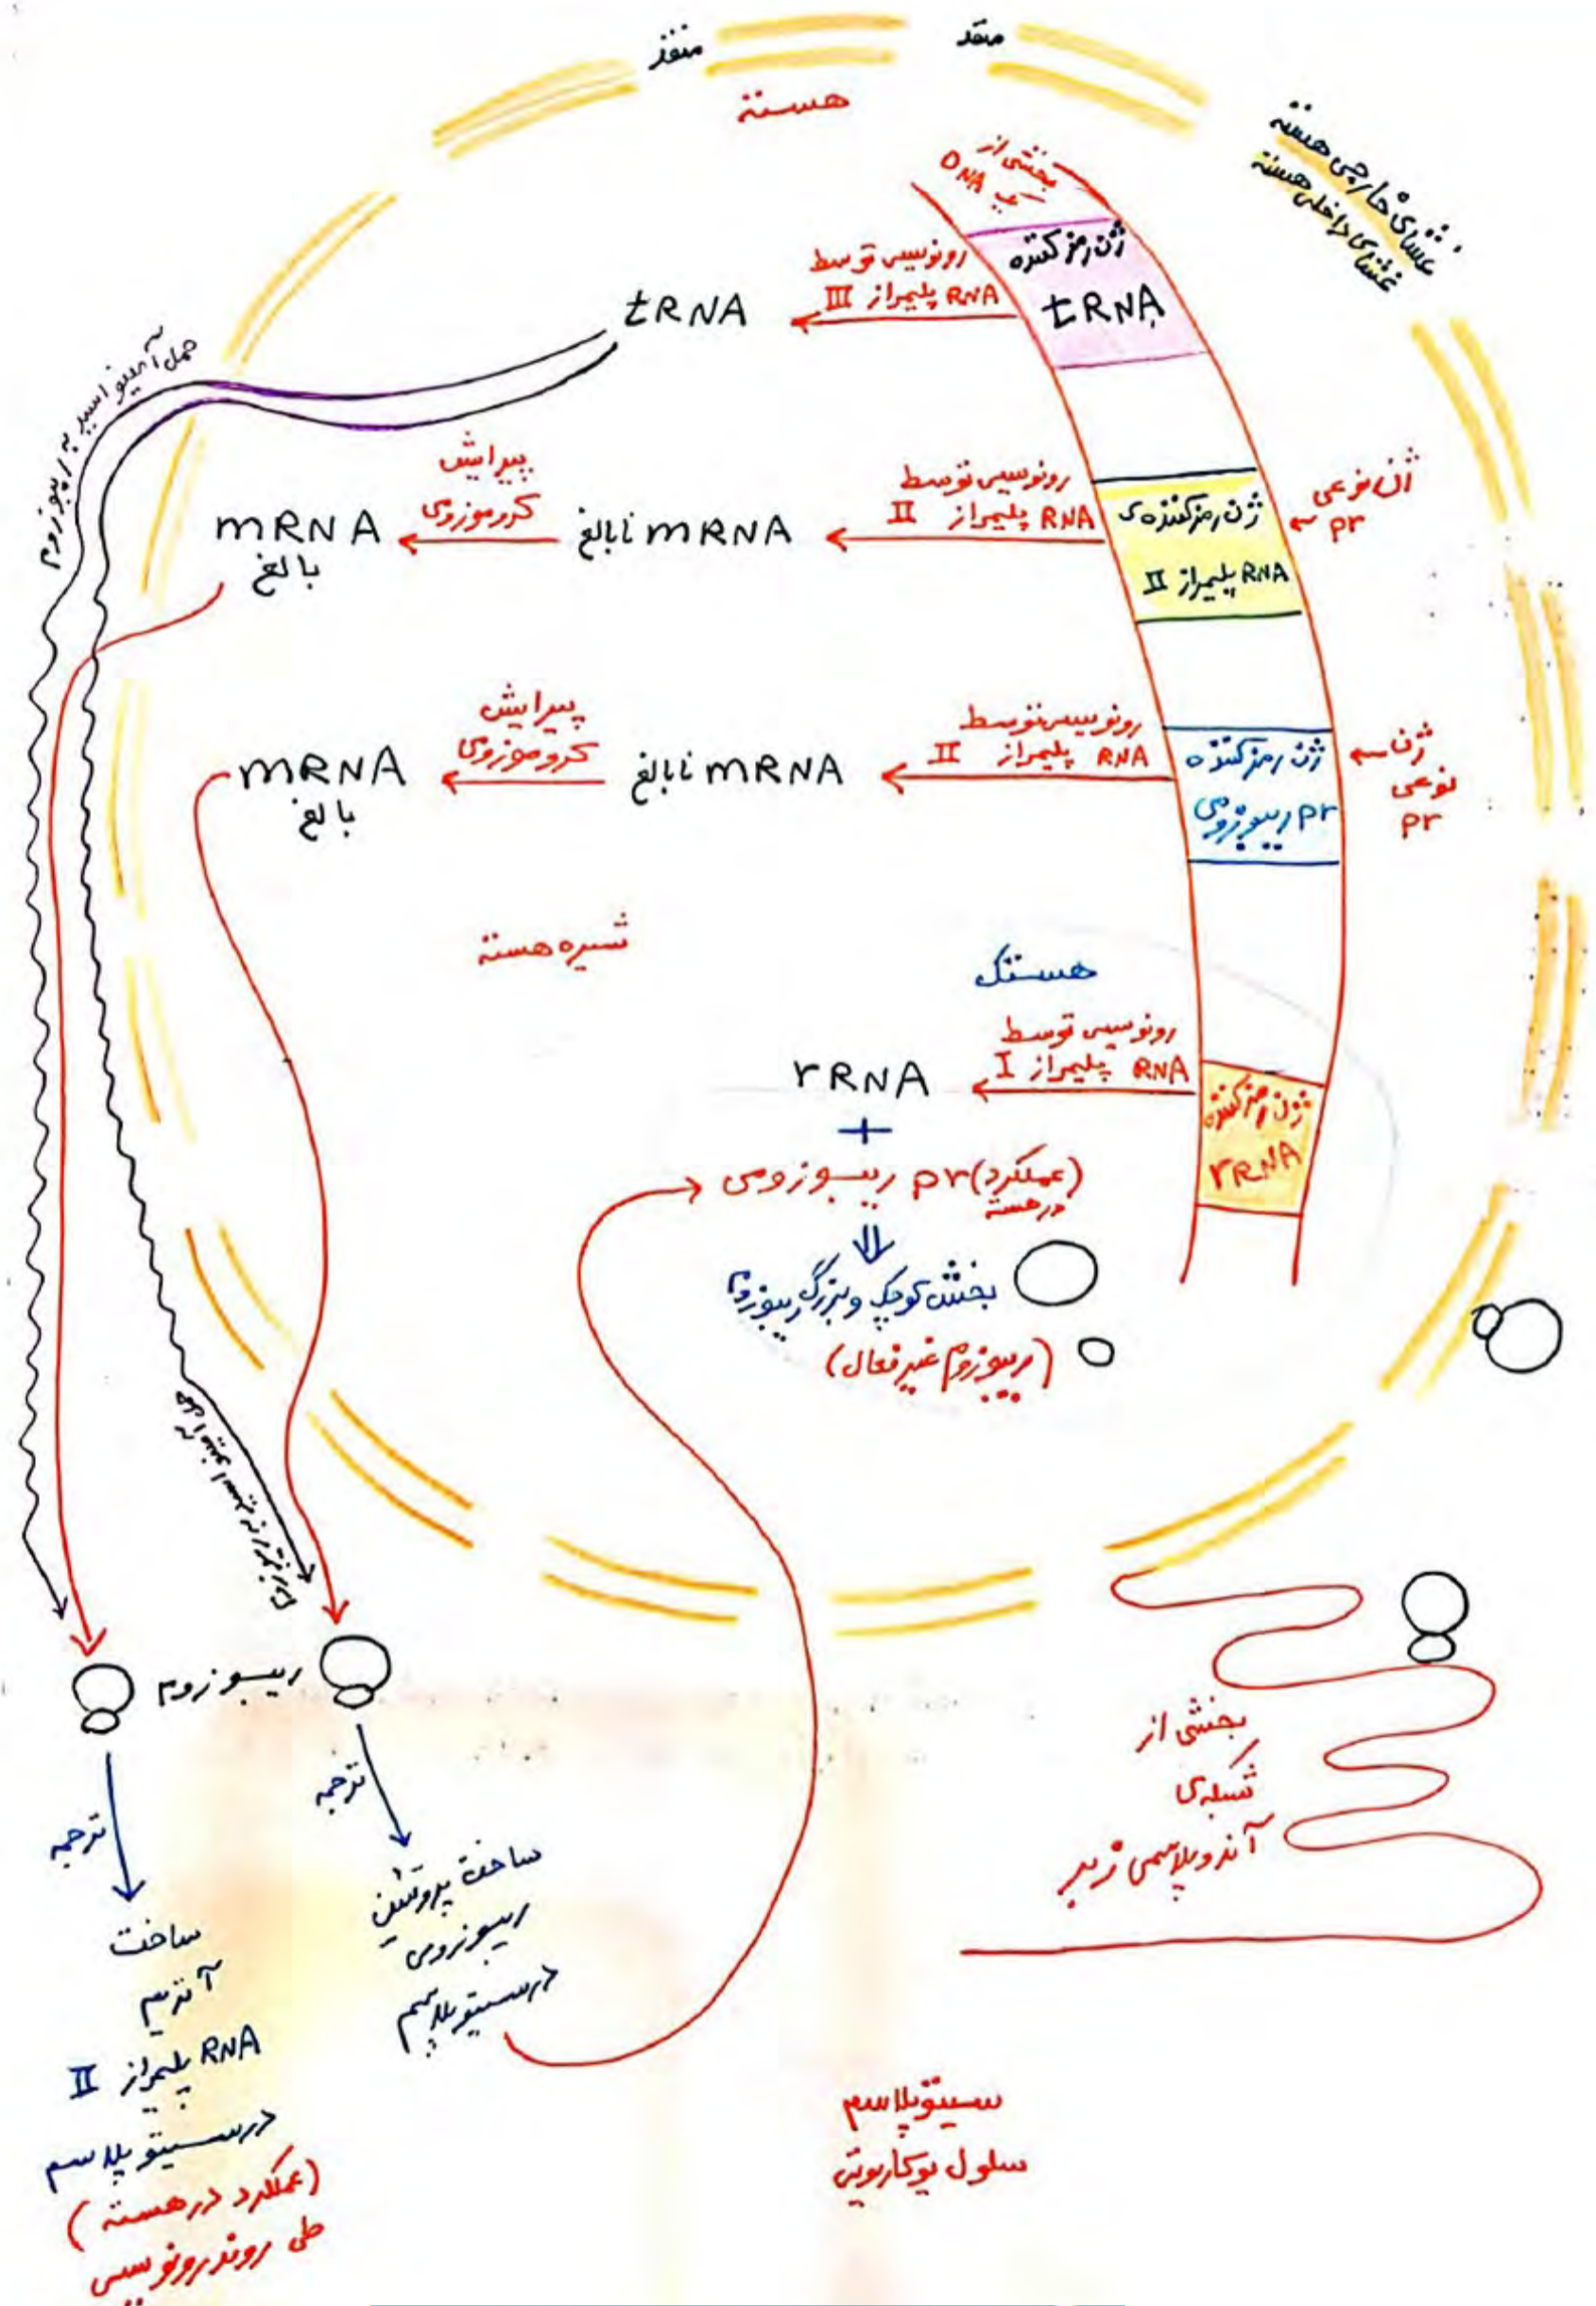 منفذ
منفذ
هسته
غشای خارجی هسته
غشای داخلی هسته
بخشی از
یک DNA
ژن رمز کننده
tRNA
رونویسی توسط
RNA پلیمراز III
tRNA
حمل آمینو اسید به ریبوزوم
ژن نوعی
pr
ژن رمز کننده‌ی
RNA پلیمراز II
رونویسی توسط
RNA پلیمراز II
mRNA نابالغ
پیرایش
کروموزومی
mRNA
بالغ
ژن
نوعی
pr
ژن رمز کننده
pr ریبوزومی
رونویسی توسط
RNA پلیمراز II
mRNA نابالغ
پیرایش
کروموزومی
mRNA
بالغ
شیره هسته
هستک
ژن رمز کننده
rRNA
رونویسی توسط
RNA پلیمراز I
rRNA
+
(عملکرد) pr ریبوزومی
در هسته
بخش کوچک و بزرگ ریبوزوم
(ریبوزوم غیرفعال)
حمل آمینو اسید به ریبوزوم
ریبوزوم
ترجمه
ترجمه
ساخت پروتئین
ریبوزومی
در سیتوپلاسم
ساخت
آنزیم
RNA پلیمراز II
در سیتوپلاسم
(عملکرد در هسته)
طی روند رونویسی
بخشی از
شبکه‌ی
آندوپلاسمی زبر
سیتوپلاسم
سلول یوکاریوتی